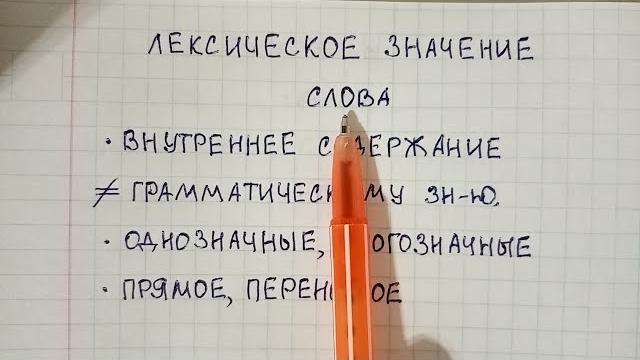 ЛЕКСИЧЕСКОЕ ЗНАЧЕНИЕ
СЛОВА
· ВНУТРЕННЕЕ СОДЕРЖАНИЕ
≠ ГРАММАТИЧЕСКОМУ ЗН-Ю.
· ОДНОЗНАЧНЫЕ, МНОГОЗНАЧНЫЕ
· ПРЯМОЕ, ПЕРЕНОСНОЕ